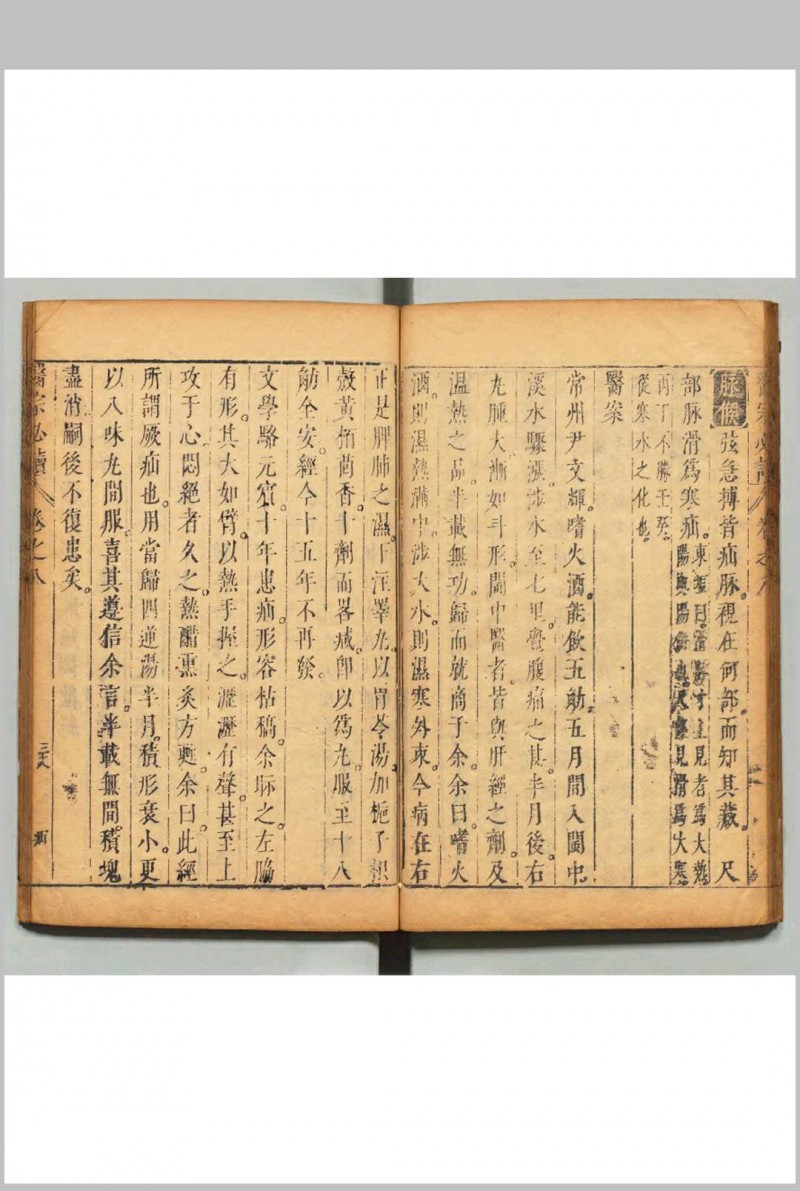 醫宗必讀 卷之八
脉候 弦急搏皆疝脉。視在何部而知其藏。尺
部脉滑爲寒疝。東垣曰寸見者爲大熱
陽與陽 見滑爲大寒
丙丁不勝壬癸
從寒水之化也
醫案
常州尹文輝。嗜火酒。能飲五觔。五月間入閩中。
溪水驟漲。涉水至七里。覺腹痛之甚。半月後。右
丸腫大。漸如斗形。閩中醫者。皆與肝經之劑。及
温熱之品。半載無功。歸而就商于余。余曰。嗜火
酒。則濕熱滿中。涉大水。則濕寒外束。今病在右
正是脾肺之濕。下注睪丸。以胃苓湯加梔子枳
殻黄栢茴香。十劑而畧减。卽以爲丸。服至十八
觔全安。經今十五年不再發。
文學駱元賓。十年患疝。形容枯稿。余脈之。左脇
有形。其大如臂。以熱手握之。瀝瀝有聲。甚至上
攻于心。悶絶者久之。熱醋熏炙方甦。余曰此經
所謂厥疝也。用當歸四逆湯。半月。積形衰小。更
以八味丸間服。喜其遵信余言。半載無間。積塊
盡消。嗣後不復患矣。
醫宗必讀 卷之八 三十八